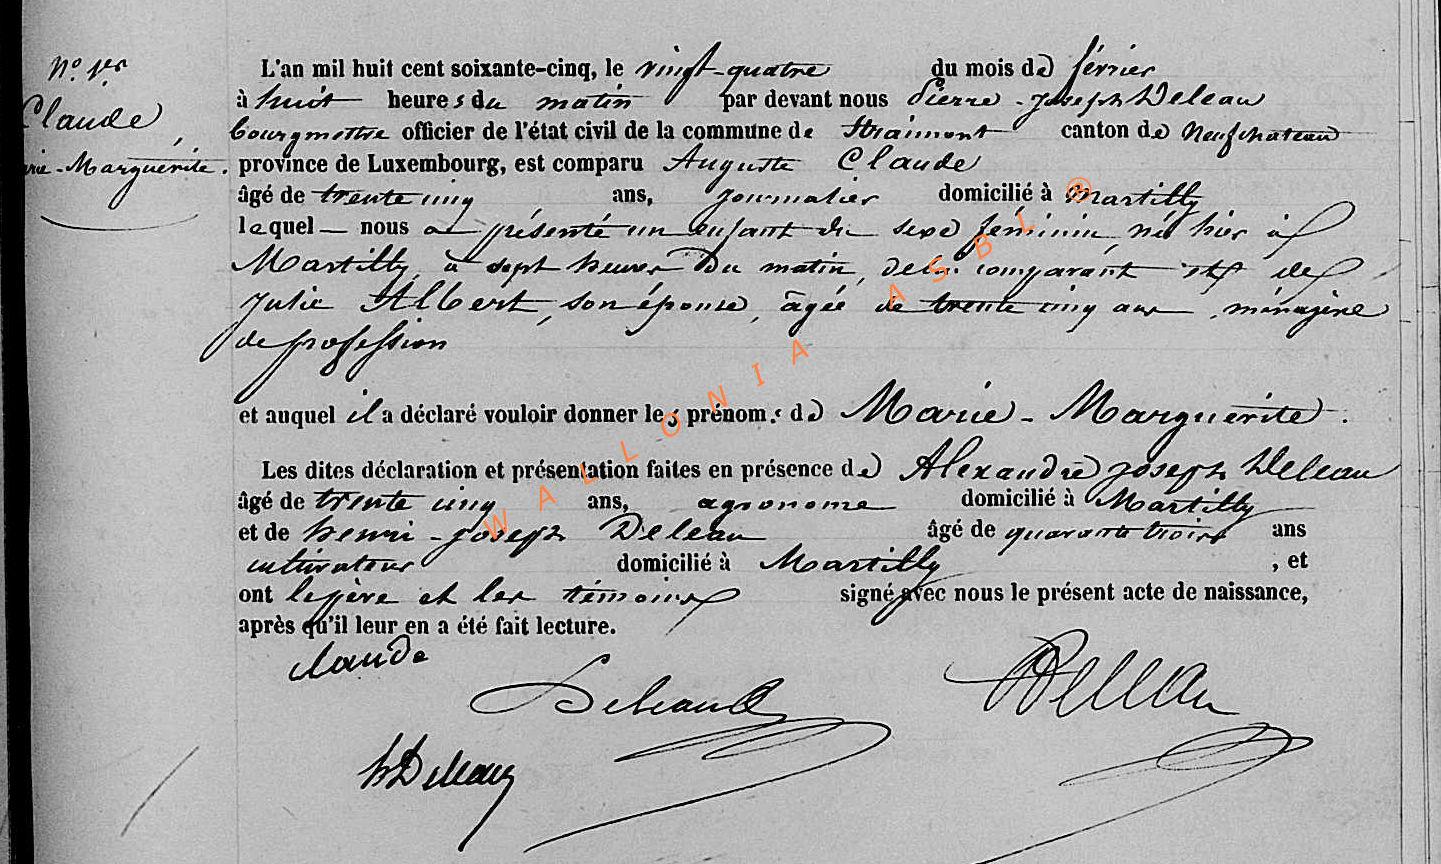 N.º 1er
Claude,
Marie-Marguérite.
L'an mil huit cent soixante-cinq, le vingt-quatre du mois de février
à huit heures du matin par devant nous Pierre-Joseph Deleau
bourgmestre officier de l'état civil de la commune de Straimont canton de Neufchateau
province de Luxembourg, est comparu Auguste Claude
âgé de trente cinq ans, journalier domicilié à Martilly
lequel — nous a présenté un enfant du sexe féminin, né hier à
Martilly, à sept heures du matin, de lui comparant et de
Julie Albert, son épouse, âgée de trente cinq ans, ménagère
de profession
et auquel il a déclaré vouloir donner les prénoms de Marie-Marguérite.
Les dites déclaration et présentation faites en présence de Alexandre Joseph Deleau
âgé de trente cinq ans, agronome domicilié à Martilly
et de henri-Joseph Deleau âgé de quarante trois ans
cultivateur domicilié à Martilly, et
ont le père et les témoins signé avec nous le présent acte de naissance,
après qu'il leur en a été fait lecture.
claude
Deleau
Deleau
h Deleau
WALLONIA ASBL ®